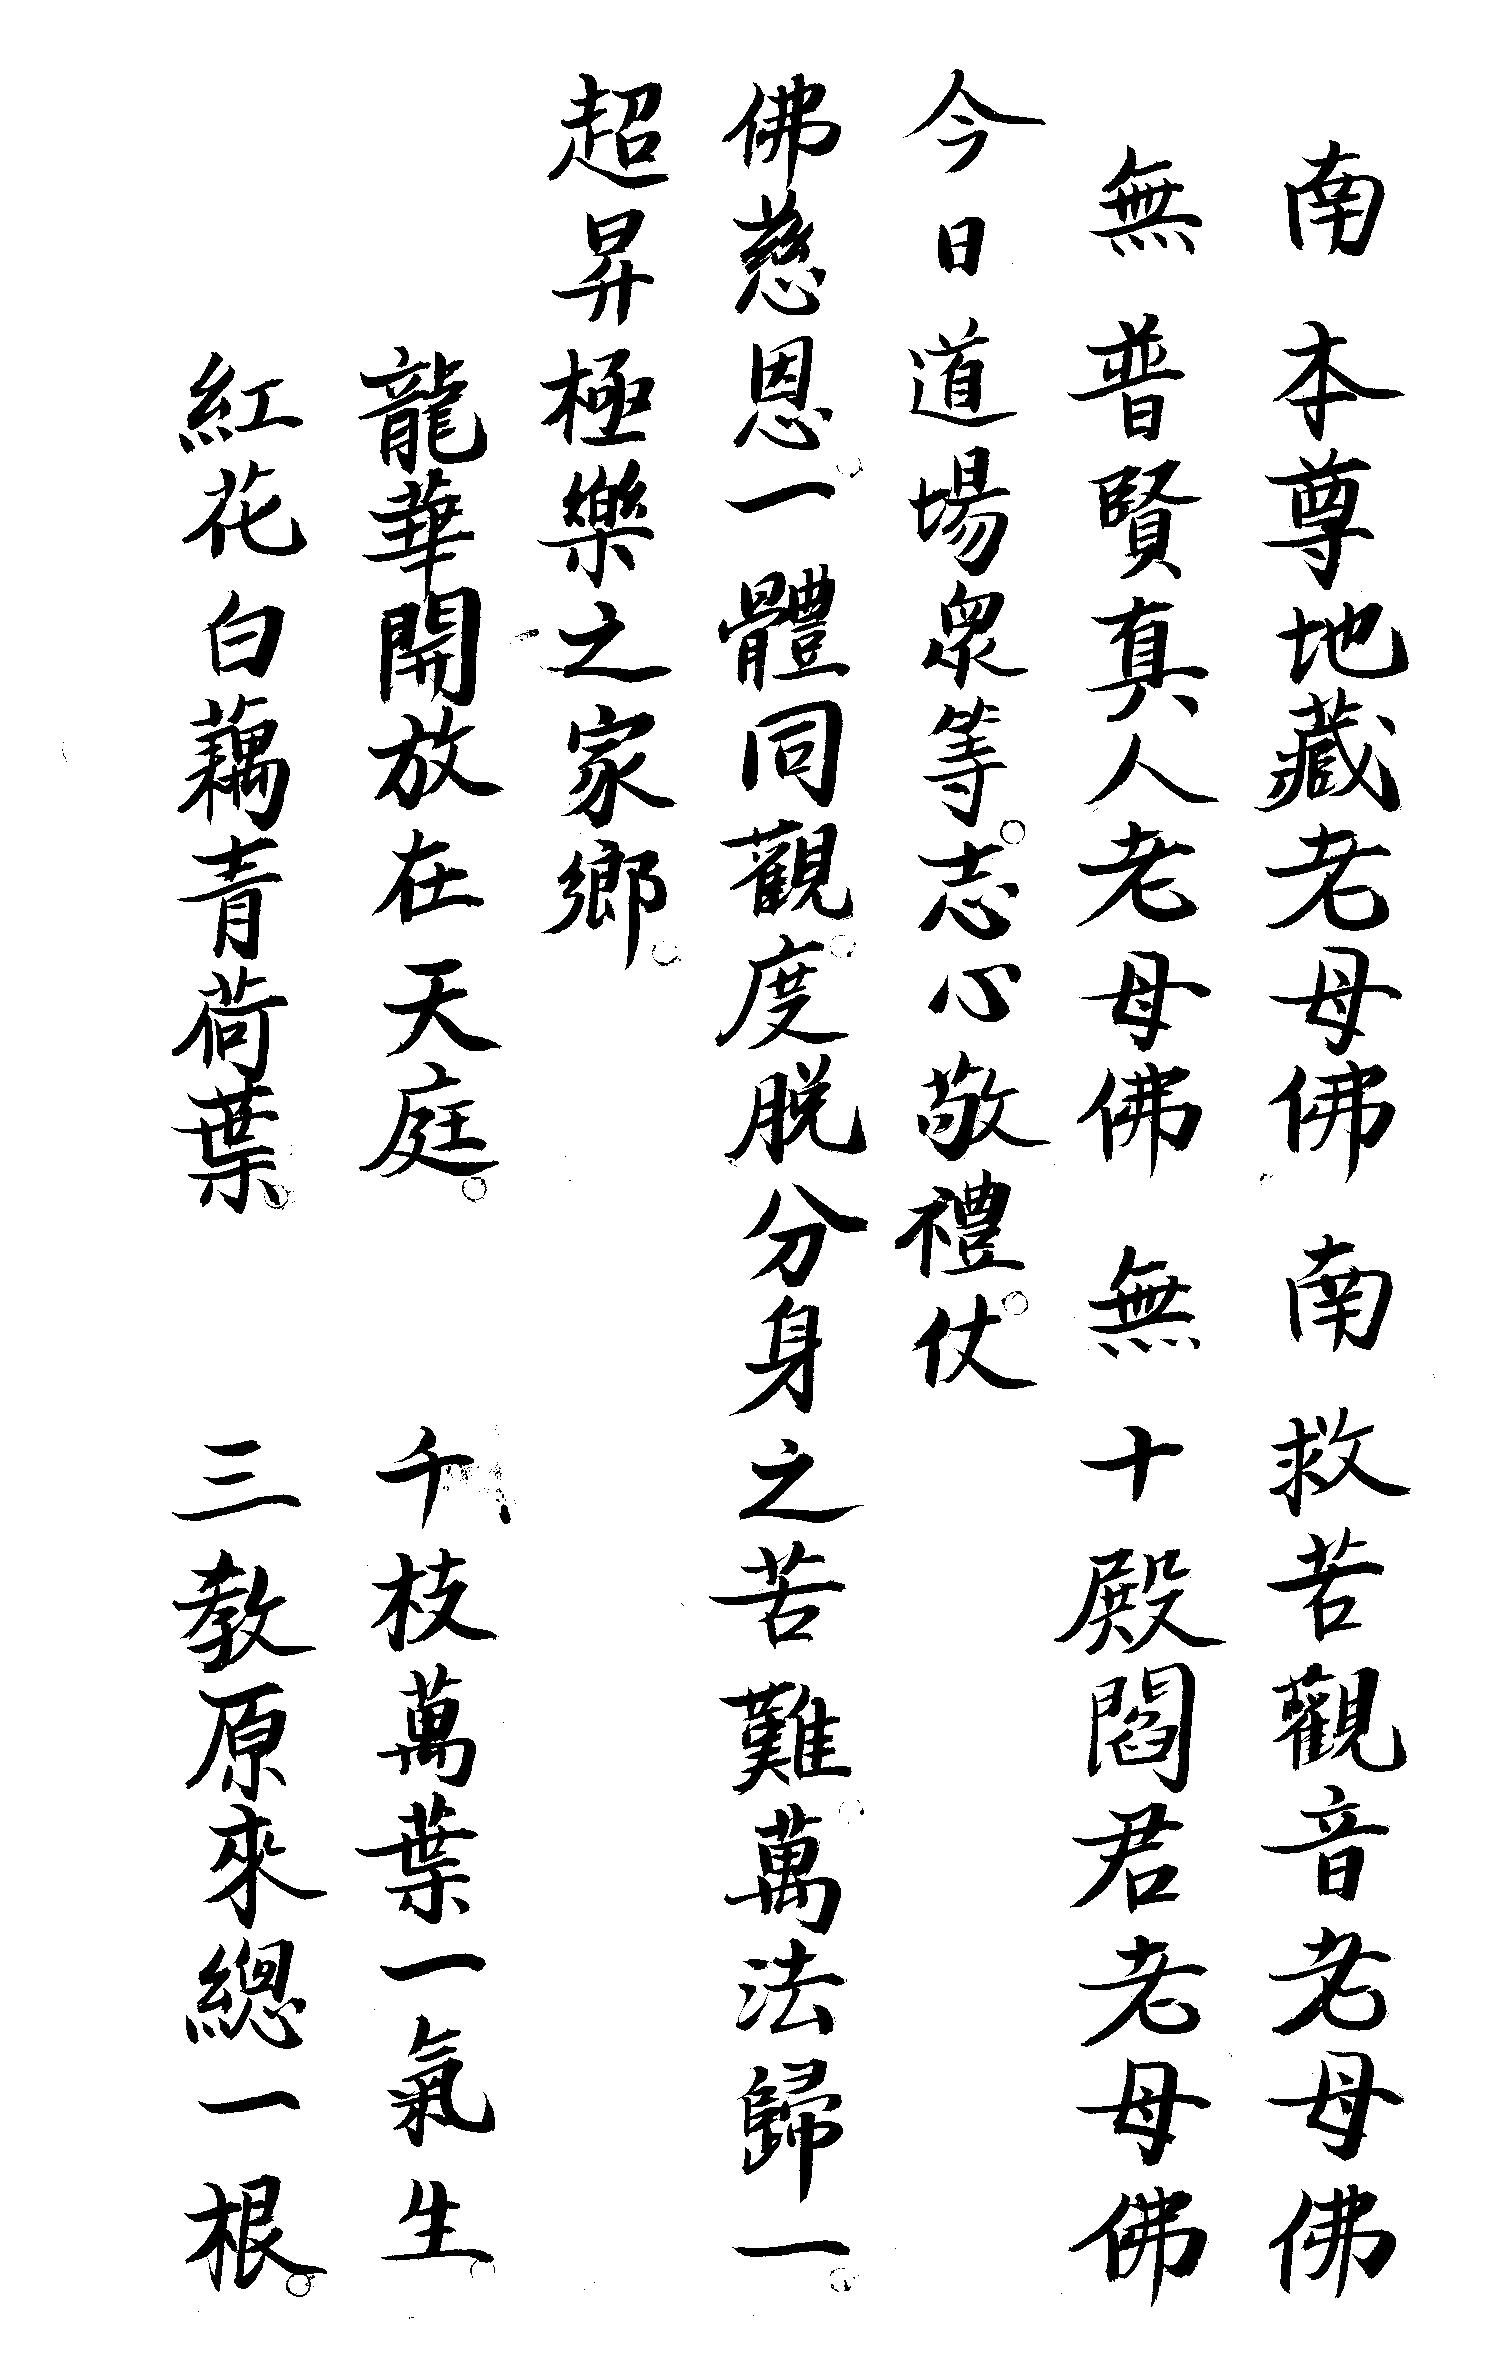 南　本尊地藏老母佛　南　救苦觀音老母佛
無　普賢真人老母佛　無　十殿閻君老母佛
今日道場眾等。志心敬禮。仗
佛慈恩。一體同觀。度脫分身之苦難。萬法歸一。
超昇極樂之家鄉。
龍華開放在天庭。　千枝萬葉一氣生。
紅花白藕青荷葉。　三教原來總一根。